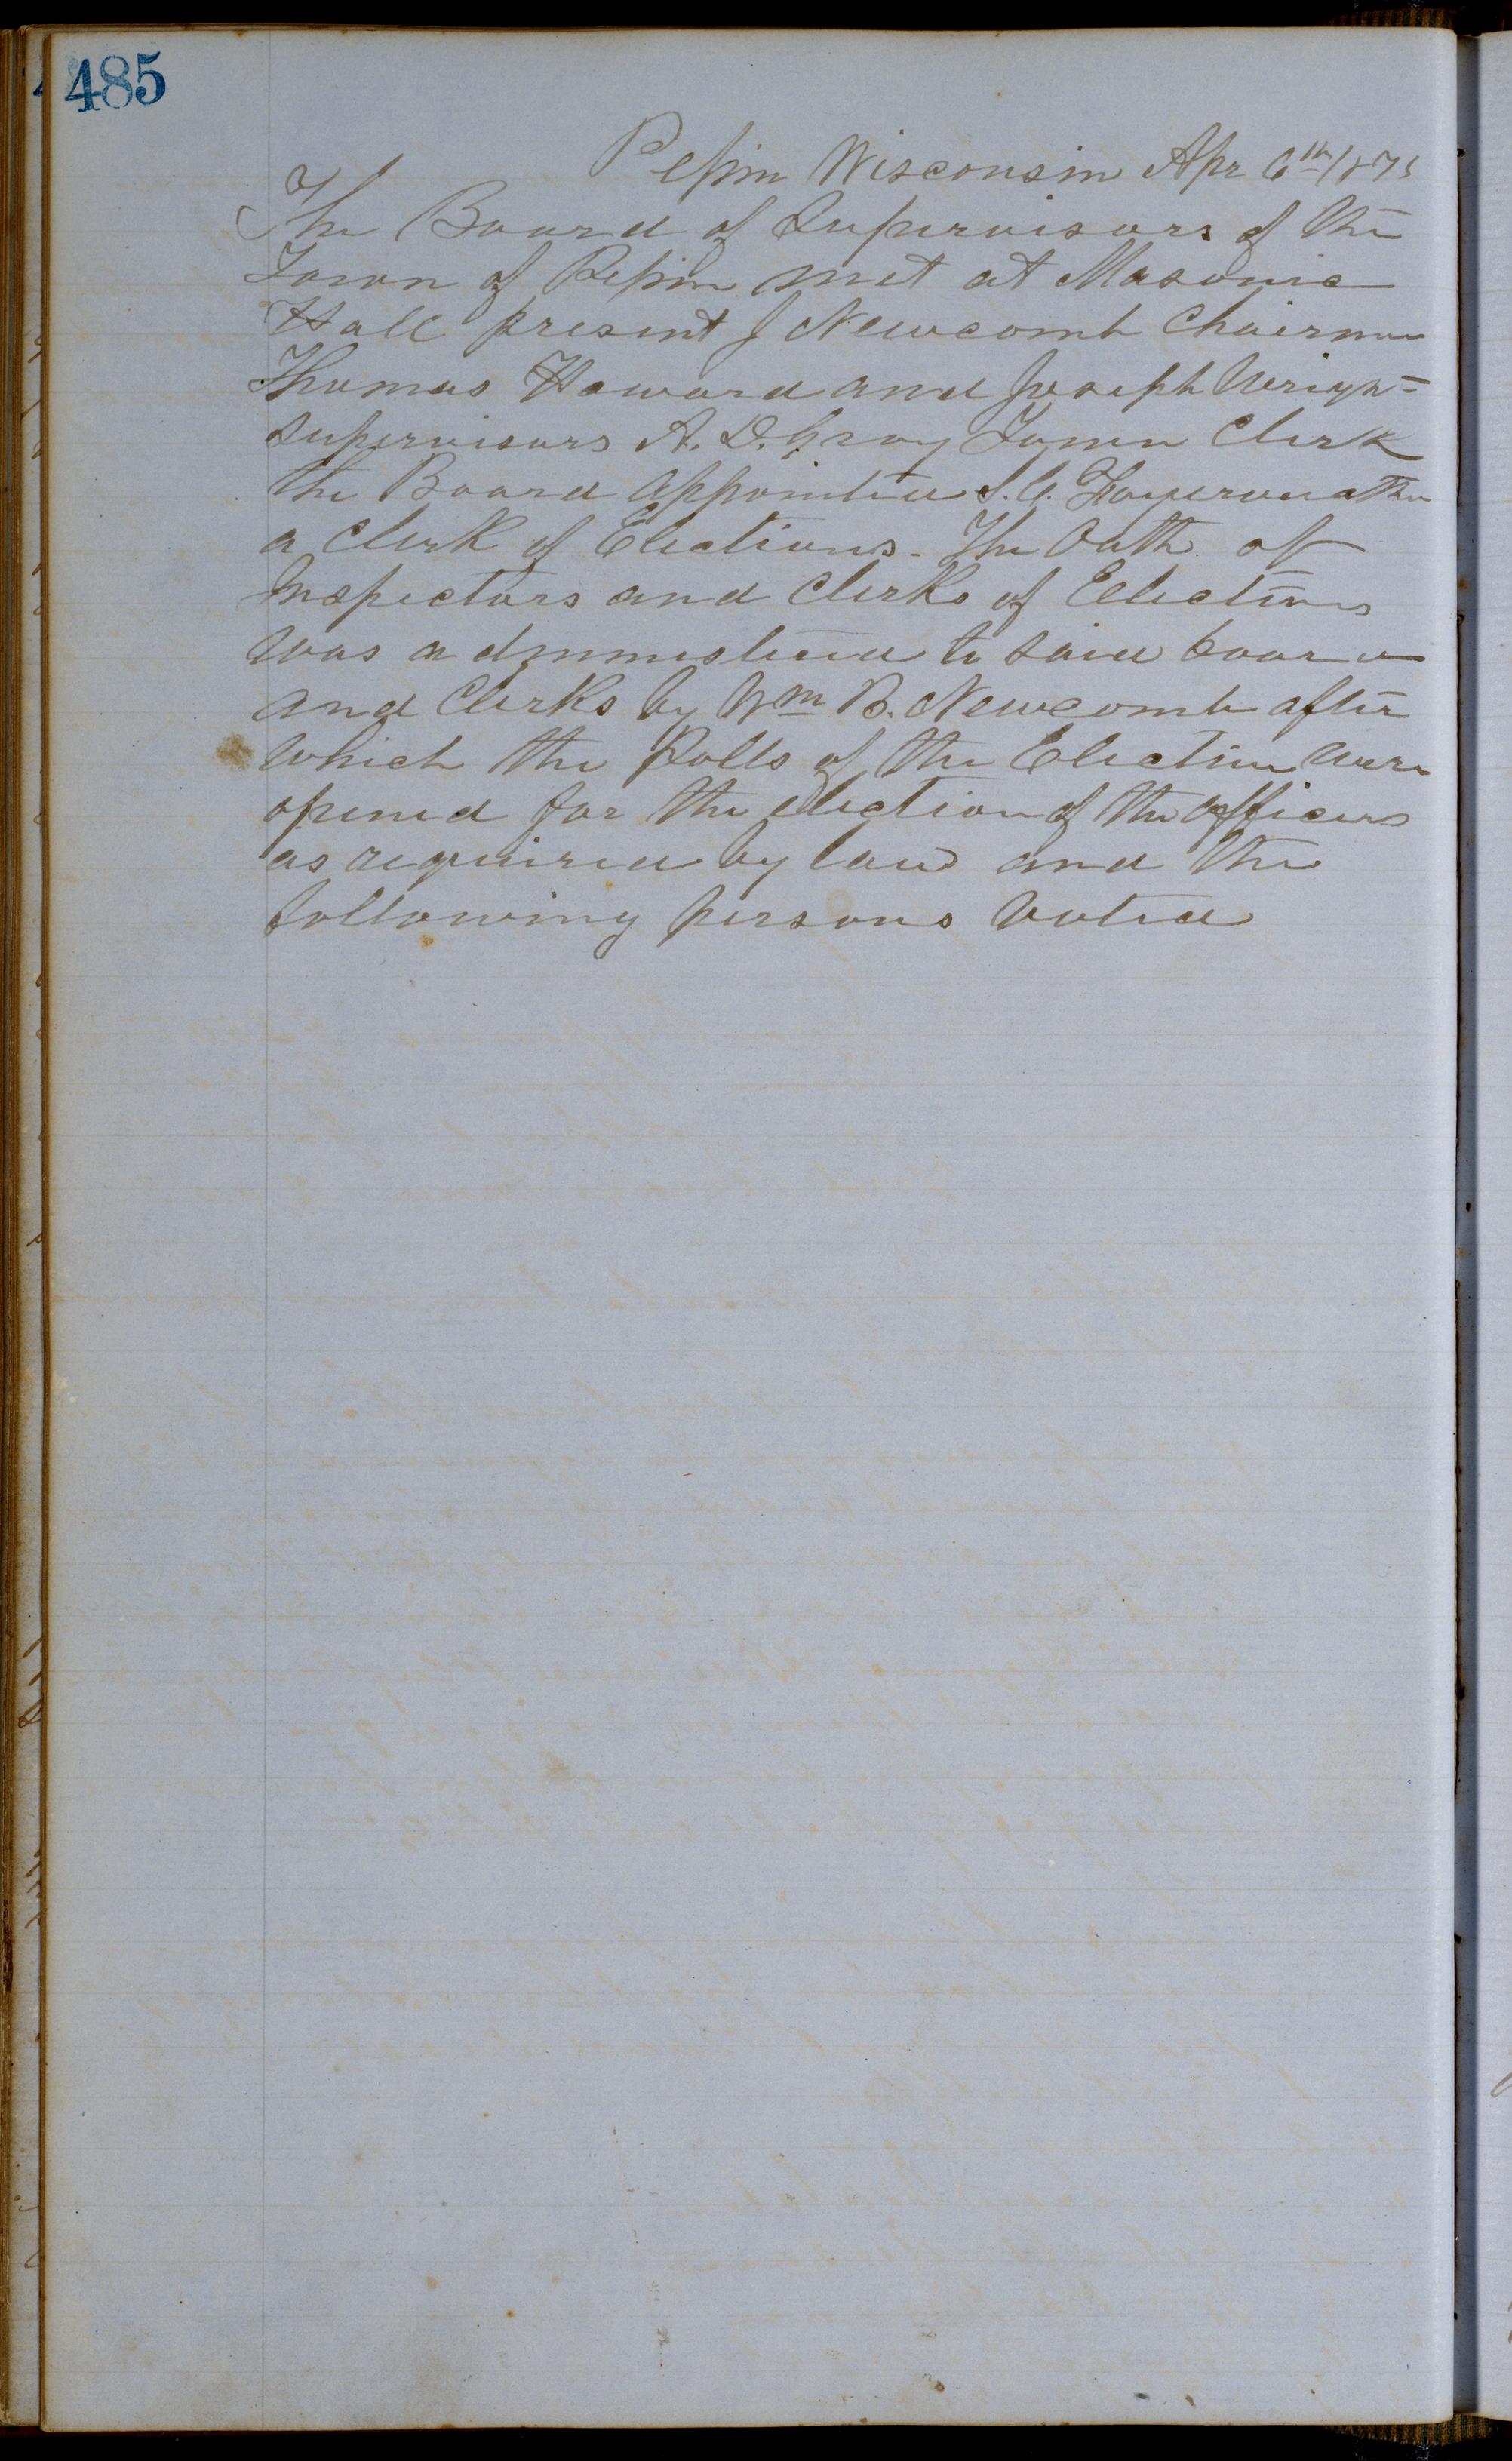 485
Pepin Wisconsin Apr 6th 1875
The Board of Supervisors of the
Town of Pepin met at Masonic
Hall present J Newcomb Chairman
Thomas Howard and Joseph Wright
Supervisors A. D. Gray Town Clerk
the Board appointed
a Clerk of Elections - The Oath of
Inspectors and Clerks of Elections
was administered to said board
and Clerks by Wm B. Newcomb after
which the Polls of the Election were
opened for the election of the officers
as required by law and the
following persons voted